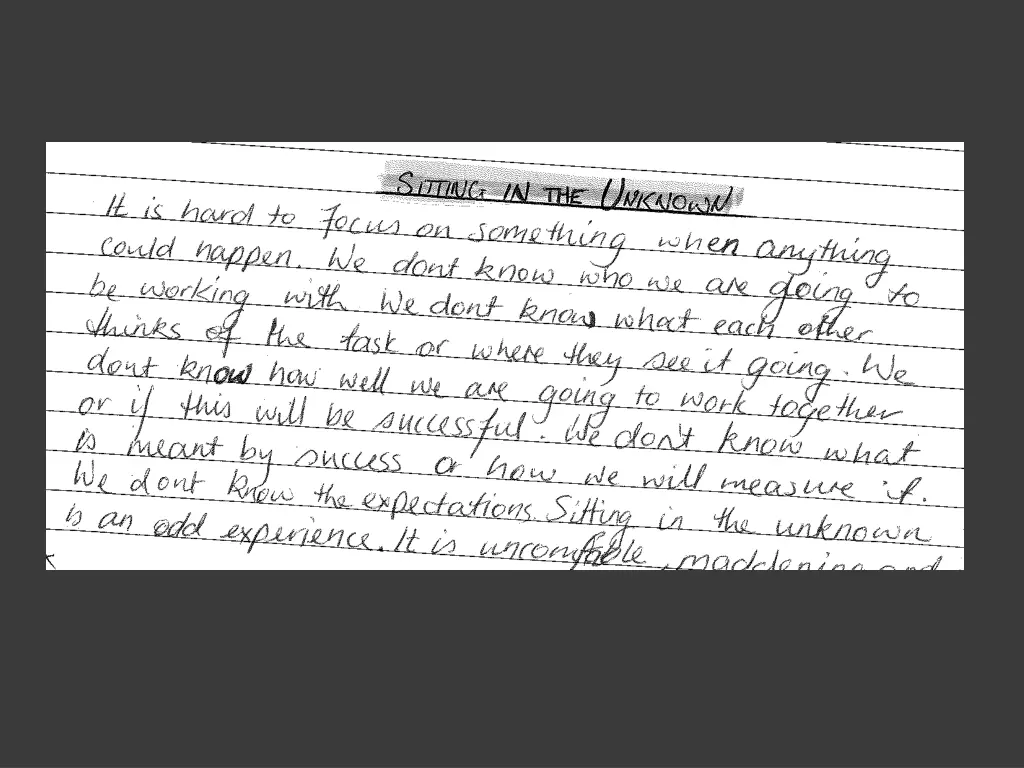 SITTING IN THE UNKNOWN
It is hard to focus on something when anything
could happen. We dont know who we are going to
be working with We dont know what each other
thinks of the task or where they see it going. We
dont know how well we are going to work together
or if this will be successful. We don't know what
is meant by success or how we will measure it.
We dont know the expectations. Sitting in the unknown
is an odd experience. It is uncomfable, maddening and